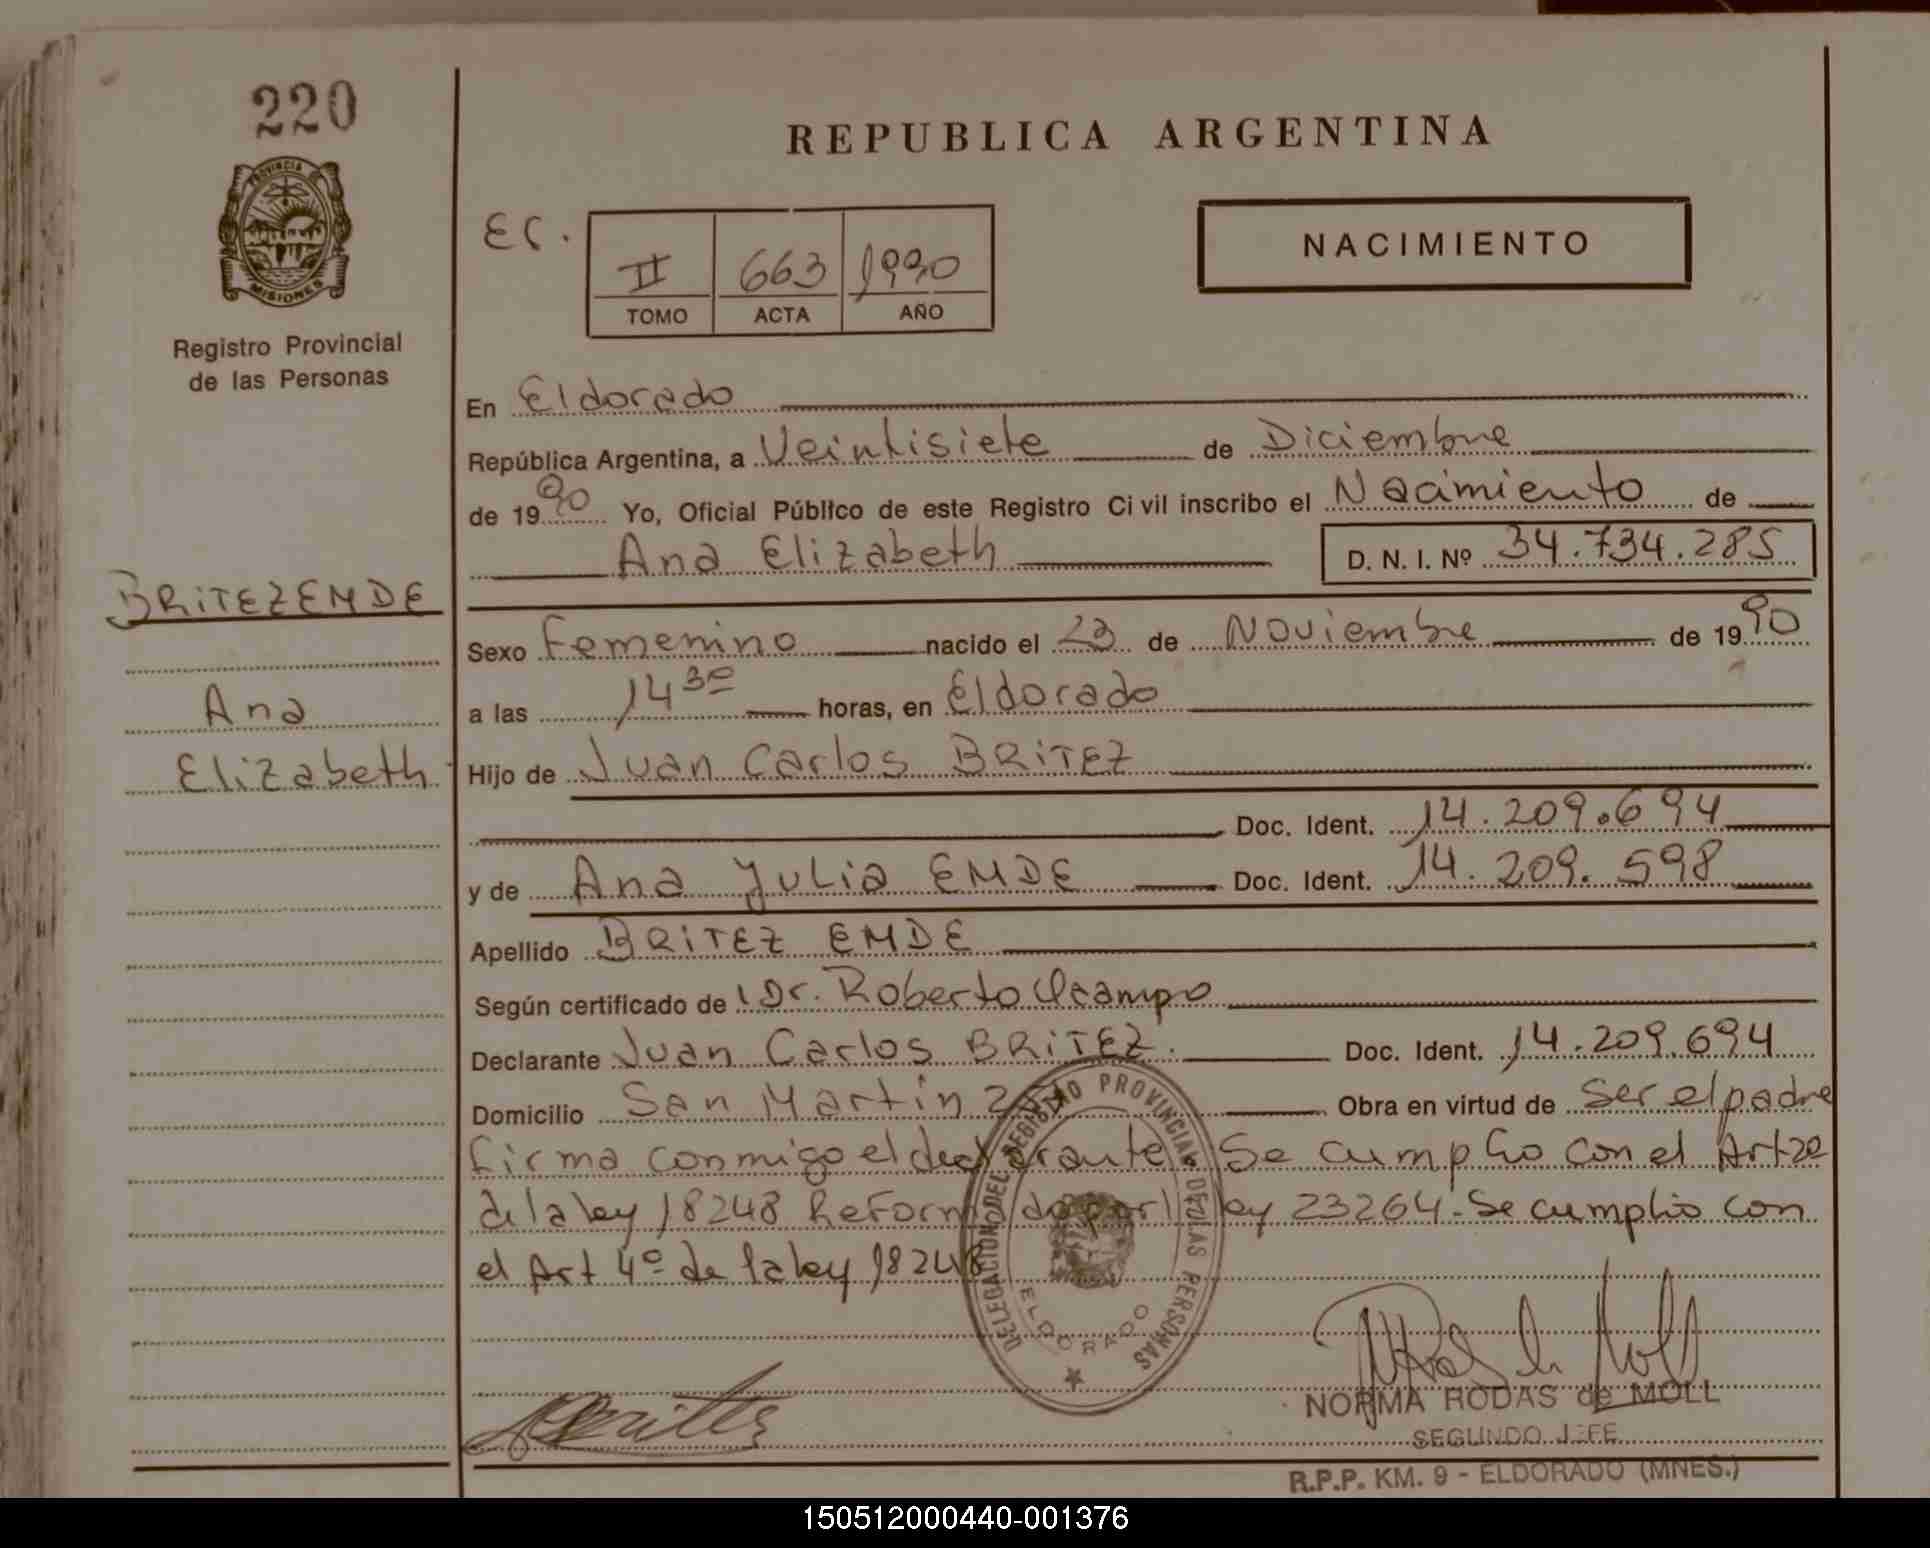 220
PROVINCIA DE
MISIONES
Registro Provincial
de las Personas
BRITEZ EMDE
Ana
Elizabeth
REPUBLICA ARGENTINA
EC.
II 663 1990
TOMO ACTA AÑO
NACIMIENTO
En Eldorado
República Argentina, a Veintisiete de Diciembre
de 1990 Yo, Oficial Público de este Registro Civil inscribo el Nacimiento de
Ana Elizabeth D. N. I. Nº 34.734.285
Sexo Femenino nacido el 23 de Noviembre de 1990
a las 14 30 horas, en Eldorado
Hijo de Juan Carlos BRITEZ
Doc. Ident. 14.209.694
y de Ana Julia EMDE Doc. Ident. 14.209.598
Apellido BRITEZ EMDE
Según certificado de Dr. Roberto Ocampo
Declarante Juan Carlos BRITEZ. Doc. Ident. 14.209.694
Domicilio San Martin Obra en virtud de Ser el padre
Firma conmigo el declarante Se cumplio con el Art
de la ley 18248 Reformado por ley 23264 - Se cumplio con
el Art 4º de la ley 18248
DELEGACION DEL REGISTRO PROVINCIAL DE LAS PERSONAS
ELDORADO
NORMA RODAS de MOLL
SEGUNDO JEFE
R.P.P. KM. 9 - ELDORADO (MNES.)
150512000440-001376